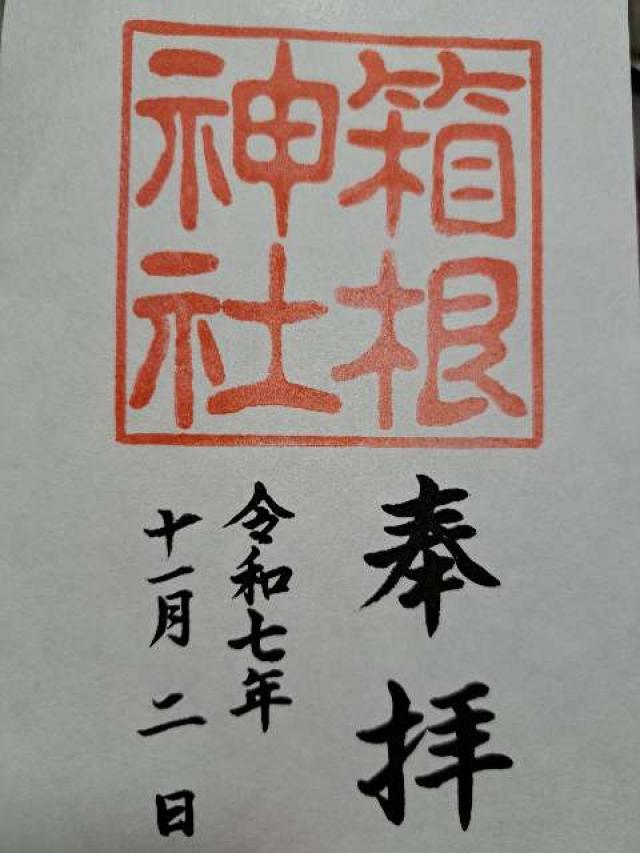 箱根
神社
奉拝
令和七年
十一月二日